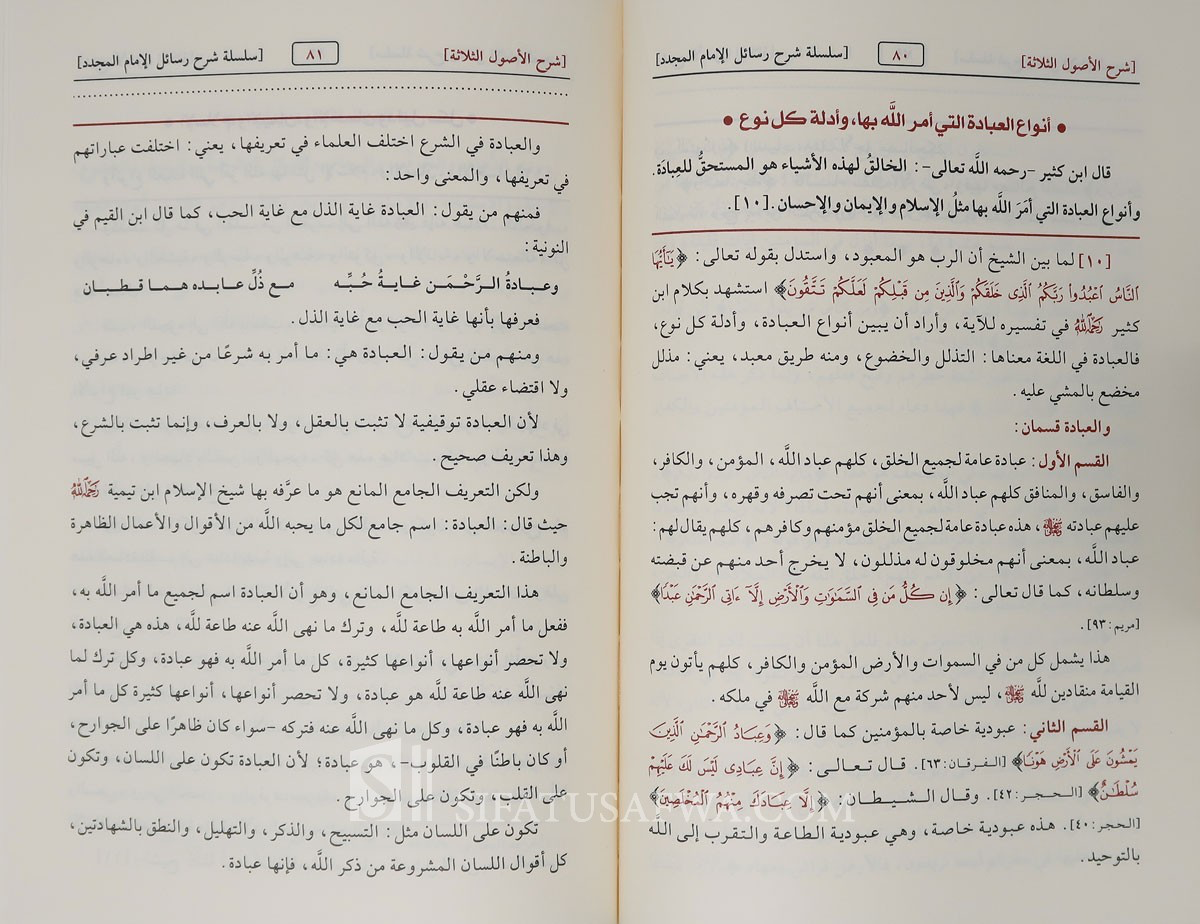 [شرح الأصول الثلاثة] ٨٠ [سلسلة شرح رسائل الإمام المجدد]
• أنواع العبادة التي أمر اللَّه بها، وأدلة كل نوع •
قال ابن كثير -رحمه اللَّه تعالى-: الخالقُ لهذه الأشياء هو المستحقُّ للعِبادَة.
وأنواع العبادة التي أمَرَ اللَّه بها مثلُ الإسلام والإيمان والإحسان. [١٠].
[١٠] لما بين الشيخ أن الرب هو المعبود، واستدل بقوله تعالى: ﴿يَٰٓأَيُّهَا
ٱلنَّاسُ ٱعْبُدُوا۟ رَبَّكُمُ ٱلَّذِى خَلَقَكُمْ وَٱلَّذِينَ مِن قَبْلِكُمْ لَعَلَّكُمْ تَتَّقُونَ﴾ استشهد بكلام ابن
كثير رَحِمَهُ اللَّهُ في تفسيره للآية، وأراد أن يبين أنواع العبادة، وأدلة كل نوع،
فالعبادة في اللغة معناها: التذلل والخضوع، ومنه طريق معبد، يعني: مذلل
مخضع بالمشي عليه.
والعبادة قسمان:
القسم الأول: عبادة عامة لجميع الخلق، كلهم عباد اللَّه، المؤمن، والكافر،
والفاسق، والمنافق كلهم عباد اللَّه، بمعنى أنهم تحت تصرفه وقهره، وأنهم تجب
عليهم عبادته ، هذه عبادة عامة لجميع الخلق مؤمنهم وكافرهم، كلهم يقال لهم:
عباد اللَّه، بمعنى أنهم مخلوقون له مذللون، لا يخرج أحد منهم عن قبضته
وسلطانه، كما قال تعالى: ﴿إِن كُلُّ مَن فِى ٱلسَّمَٰوَٰتِ وَٱلْأَرْضِ إِلَّآ ءَاتِى ٱلرَّحْمَٰنِ عَبْدًا﴾
[مريم: ٩٣].
هذا يشمل كل من في السموات والأرض المؤمن والكافر، كلهم يأتون يوم
القيامة منقادين للَّه ، ليس لأحد منهم شركة مع اللَّه في ملكه.
القسم الثاني: عبودية خاصة بالمؤمنين كما قال: ﴿وَعِبَادُ ٱلرَّحْمَٰنِ ٱلَّذِينَ
يَمْشُونَ عَلَى ٱلْأَرْضِ هَوْنًا﴾ [الفرقان: ٦٣]. قال تعالى: ﴿إِنَّ عِبَادِى لَيْسَ لَكَ عَلَيْهِمْ
سُلْطَٰنٌ﴾ [الحجر: ٤٢]. وقال الشيطان: ﴿إِلَّا عِبَادَكَ مِنْهُمُ ٱلْمُخْلَصِينَ﴾
[الحجر: ٤٠]. هذه عبودية خاصة، وهي عبودية الطاعة والتقرب إلى اللَّه
بالتوحيد.
[شرح الأصول الثلاثة] ٨١ [سلسلة شرح رسائل الإمام المجدد]
والعبادة في الشرع اختلف العلماء في تعريفها، يعني: اختلفت عباراتهم
في تعريفها، والمعنى واحد:
فمنهم من يقول: العبادة غاية الذل مع غاية الحب، كما قال ابن القيم في
النونية:
وعبادةُ الرَّحْمَن غايةُ حُبِّه مع ذُلِّ عابده هما قطبان
فعرفها بأنها غاية الحب مع غاية الذل.
ومنهم من يقول: العبادة هي: ما أمر به شرعًا من غير اطراد عرفي،
ولا اقتضاء عقلي.
لأن العبادة توقيفية لا تثبت بالعقل، ولا بالعرف، وإنما تثبت بالشرع،
وهذا تعريف صحيح.
ولكن التعريف الجامع المانع هو ما عرَّفه بها شيخ الإسلام ابن تيمية رَحِمَهُ اللَّهُ
حيث قال: العبادة: اسم جامع لكل ما يحبه اللَّه من الأقوال والأعمال الظاهرة
والباطنة.
هذا التعريف الجامع المانع، وهو أن العبادة اسم لجميع ما أمر اللَّه به،
ففعل ما أمر اللَّه به طاعة للَّه، وترك ما نهى اللَّه عنه طاعة للَّه، هذه هي العبادة،
ولا تحصر أنواعها، أنواعها كثيرة، كل ما أمر اللَّه به فهو عبادة، وكل ترك لما
نهى اللَّه عنه طاعة للَّه هو عبادة، ولا تحصر أنواعها، أنواعها كثيرة كل ما أمر
اللَّه به فهو عبادة، وكل ما نهى اللَّه عنه فتركه -سواء كان ظاهرًا على الجوارح،
أو كان باطنًا في القلوب-، هو عبادة؛ لأن العبادة تكون على اللسان، وتكون
على القلب، وتكون على الجوارح.
تكون على اللسان مثل: التسبيح، والذكر، والتهليل، والنطق بالشهادتين،
كل أقوال اللسان المشروعة من ذكر اللَّه، فإنها عبادة.
SIFATUSAFWA.COM